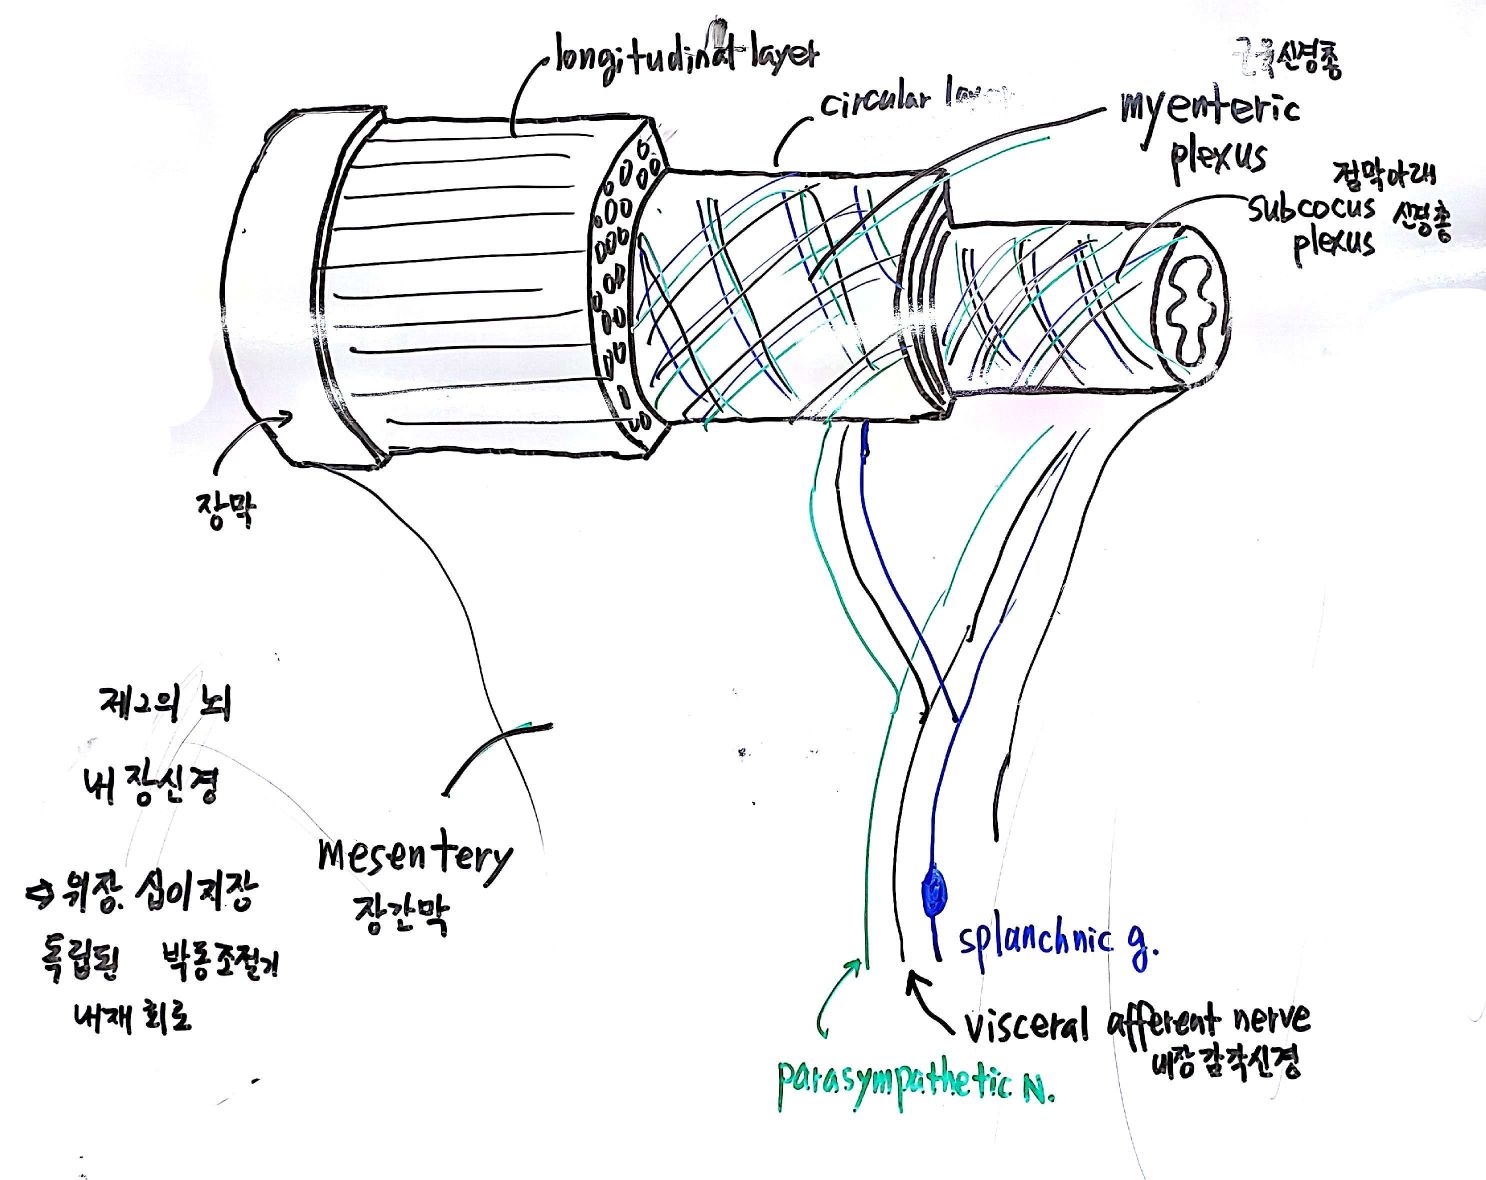 longitudinal layer
circular layer
근육신경총
myenteric
plexus
점막아래
subcocus 신경총
plexus
장막
제2의 뇌
내장신경
⇨ 위장. 십이지장
독립된 박동조절기
내재 회로
mesentery
장간막
splanchnic g.
visceral afferent nerve
내장감각신경
parasympathetic N.